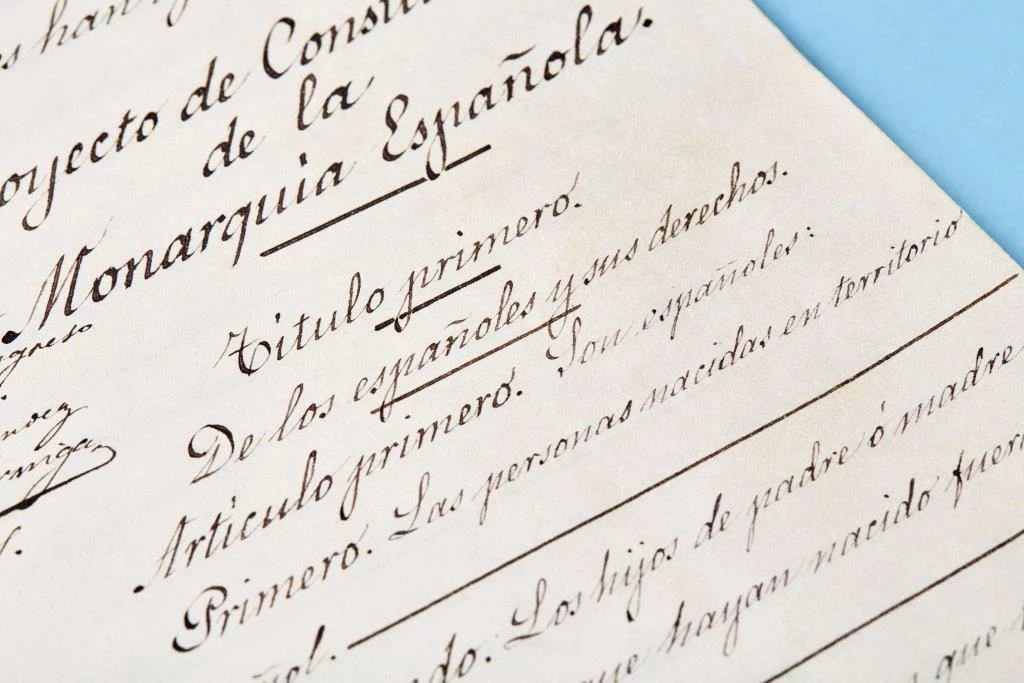 es han
oyecto de Consti
de la
Monarquia Española.
Titulo primero.
De los españoles y sus derechos.
Articulo primero. Son españoles:
Primero. Las personas nacidas en territorio
ñol.
do. Los hijos de padre ó madre
que hayan nacido fuera
que